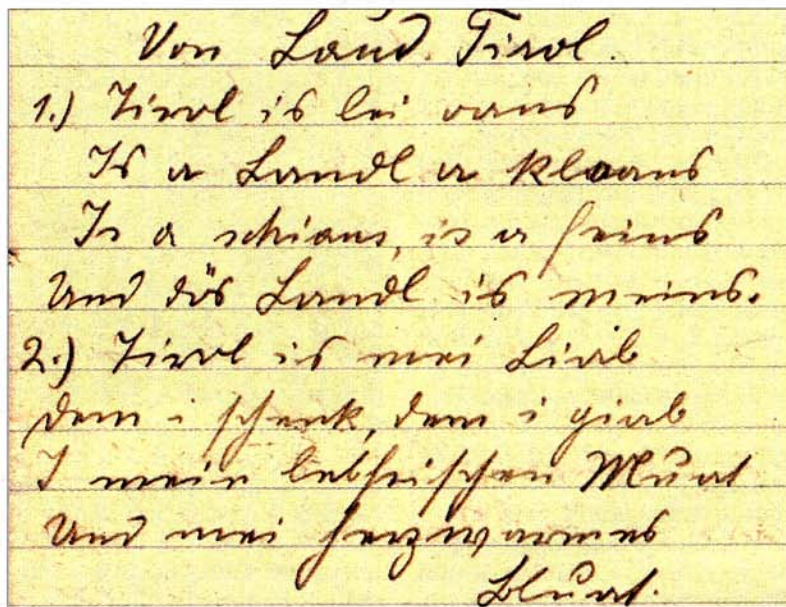 Von Land Tirol.
1.) Tirol is lei oans
Is a Landl a kloans
Is a schians, is a feins
Und dös Landl is meins.
2.) Tirol is mei Liab
dem i schenk, dem i giab
I mein lebfrischen Muat
Und mei herzwarmes
Bluat.